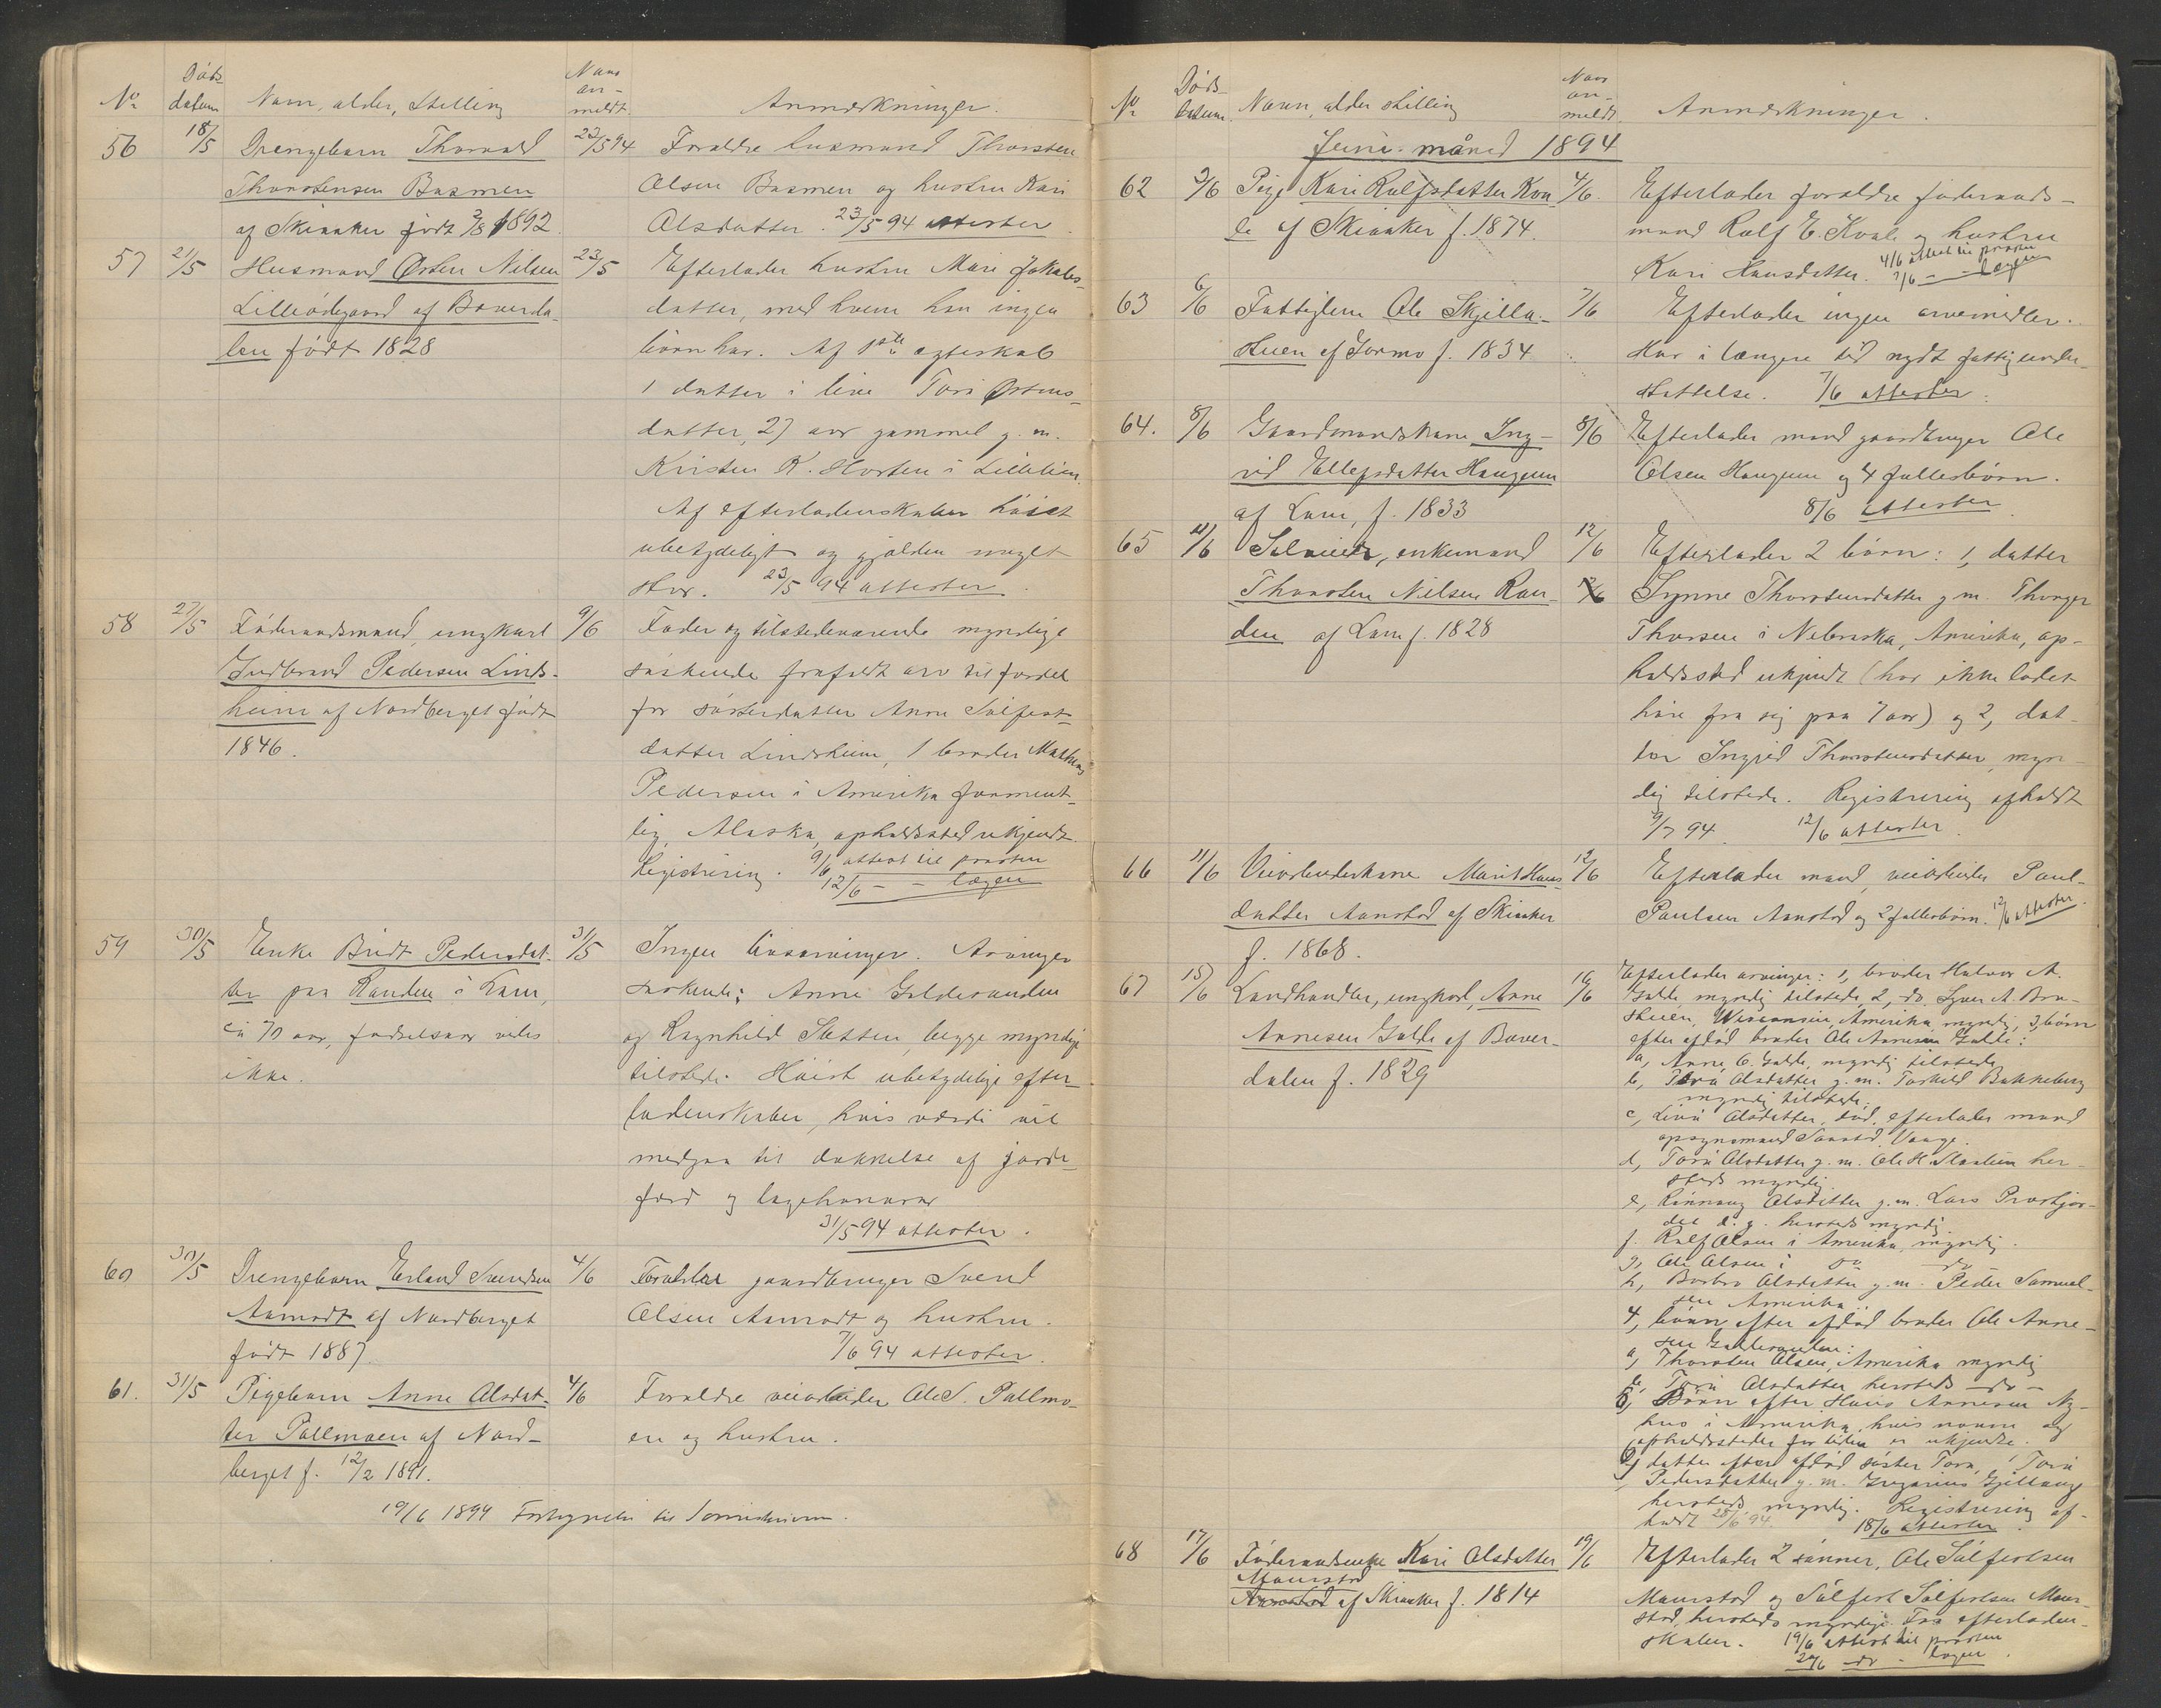 No
Døds-
datum
Navn, alder, stilling
Naar
an-
meldt
Anmærkninger.
56
18/5
Drengebarn Thorvald
Thorstensen Basmoen
af Skiaaker født 2/8 1892.
23/5 94
Forældre husmand Thorsten
Olsen Basmoen og hustru Kari
Olsdatter. 23/5 94 attester
57
21/5
Husmand Østen Nilsen
Lilleødegaard af Bøverda-
len født 1828
23/5
Efterlader hustru Mari Jakobs-
datter, med hvem han ingen
børn har. Af 1ste egteskab
1 datter i live Tori Østens-
datter, 27 aar gammel g. m.
Kristen K. Horten i Lillelien.
Af efterladenskaber høist
ubetydeligt og gjælden meget
stor. 23/5 94 attester
58
27/5
Føderaadsmand, ungkarl
Gudbrand Pedersen Linds-
heim af Nordberget født
1846.
9/6
Fader og tilstedeværende myndige
søskende frafaldt arv til fordel
for søsterdatter Anne Sølfest-
datter Lindsheim, 1 broder Mathias
Pedersen i Amerika forment-
lig Alaska, opholdssted ukjendt.
Registrering. 9/6 attest til presten
12/6 - - lægen
59
30/5
Enke Bridt Pedersdat-
ter paa Randen i Lom,
ca 70 aar, fødselsaar vides
ikke.
31/5
Ingen livsarvinger. Arvinger
søskende; Anne Galdesanden
og Ragnhild Sletten, begge myndige
tilstede. Høist ubetydelige efter-
ladenskaber, hvis værdi vil
medgaa til dækkelse af jorde-
færd og lægehonorar
31/5 94 attester.
60
30/5
Drengebarn Erland Svendsen
Aamodt af Nordberget
født 1887.
4/6
Forældre gaardbruger Svend
Olsen Aamodt og hustru.
7/6 94 attester.
61.
31/5
Pigebarn Anne Olsdat-
ter Pollmoen af Nord-
berget f. 12/2 1891.
4/6
Forældre veiarbeider Ole S. Pollmo-
en og hustru.
19/6 1894 Fortegnelse til Sorenskriveren.
No
Døds-
datum.
Navn, alder stilling
Naar
an-
meldt
Anmærkninger.
Juni måned 1894
62
3/6
Pige Kari Rolfsdatter Kva-
le af Skiaaker f. 1874.
4/6.
Efterlader forældre føderaads-
mand Rolf E. Kvale og hustru
Kari Hansdatter. 4/6 attest til presten
7/6 - - lægen
63
6/6
Fattiglem Ole Skjella-
stuen af Lormo f. 1834
7/6
Efterlader ingen arvemidler.
Har i længere tid nydt fattigunder-
støttelse. 7/6 attester.
64.
8/6
Gaardmandskone Ing-
rid Ellefsdatter Haugum
af Lom, f. 1833
8/6
Efterlader mand gaardbruger Ole
Olsen Haugum og 4 fællesbørn.
8/6 attester
65
11/6
Selveier, enkemand
Thorsten Nilsen Ran-
den af Lom f. 1828
12/6
Efterlader 2 børn: 1, datter
Synne Thorstensdatter g m. Thorger
Thorsen i Nebraska, Amerika, op-
holdssted ukjendt (har ikke ladet
høre fra sig paa 7 aar) og 2, dat-
ter Ingrid Thorstensdatter, myn-
dig tilstede. Registrering afholdt
9/7 94. 12/6 attester.
66
11/6
Veiarbeiderkone Marit Hans-
datter Aanstad af Skiaaker
f. 1868.
12/6
Efterlader mand, veiarbeider Paul
Paulsen Aanstad og 2 fællesbørn. 12/6 attester.
67
15/6
Landhandler, ungkarl, Anne
Annesen Galde af Bøver-
dalen f. 1829
16/6
Efterlader arvinger: 1, broder Halvor A.
Galde, myndig tilstede, 2, do. Syver A. Bru-
stuen, Wisconsin, Amerika, myndig, 3, børn
efter afdød broder Ole Annesen Galde:
a, Anne O. Galde, myndig tilstede
b, Tora Olsdatter g. m. Torkild Bakkeberg
myndig tilstede.
c, Livi Olsdatter, død, efterlader mand
opsynsmand Sansted, Vaage.
d, Tori Olsdatter g. m. Ole H. Slaalien her-
steds myndig
e, Rønnaug Olsdatter g. m. Lars Prestjor-
det d. y. hersteds myndig.
f. Rolf Olsen i Amerika, myndig.
g, Ole Olsen i do do
h, Barbro Olsdatter g. m. Peder Samuel-
sen Amerika.
4, børn efter afdød broder Ole Anne-
sen Galdesanden:
a, Thorsten Olsen, Amerika myndig
b, Tora Olsdatter hersteds -do-
5, Børn efter Hans Annesen Ny-
hus i Amerika, hvis navne og
opholdssteder for tiden er ukjendte.
6, datter efter afdød søster Tora, Tora
Pedersdatter g. m. Gregorius Gjeilhaug
hersteds myndig. Registrering af-
holdt 28/6 94. 18/6 attester.
68
17/6
Føderaadsenke Kari Olsdatter
Maurstad
af Skiaaker f. 1814
19/6
Efterlader 2 sønner, Ole Sølfestsen
Maurstad og Sølfest Sølfestsen Maur-
stad, hersteds myndige. Faa efterladen-
skaber. 19/6 attest til presten
20/6 do - lægen.